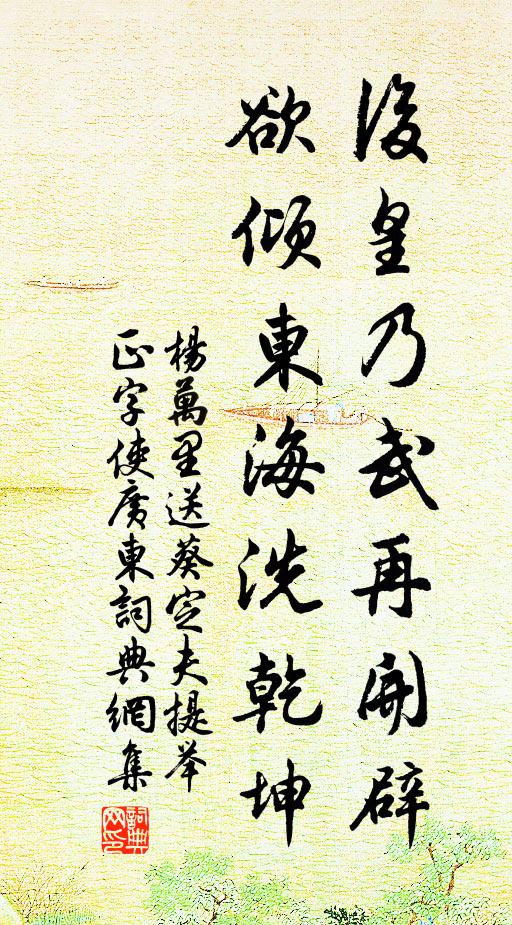 後皇乃武再開辟
欲傾東海洗乾坤
楊萬里送葵定夫提舉
正字使廣東詞典網集
詞典網印